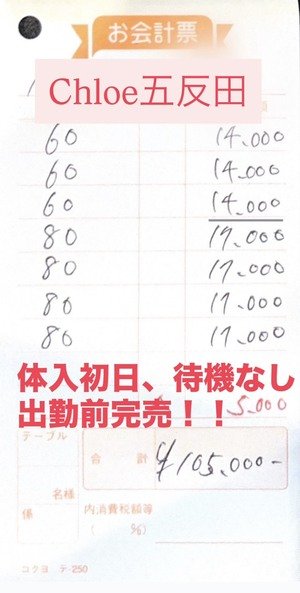 お会計票
Chloe五反田
額
60 14.000
60 14.000
60 14.000
80 17.000
80 17.000
80 17.000
80 17.000
体入初日、待機なし
出勤前完売！！
5.000
テーブル
合計 ¥105.000-
名様
係
内消費税額等
( %)
コクヨ テ-250